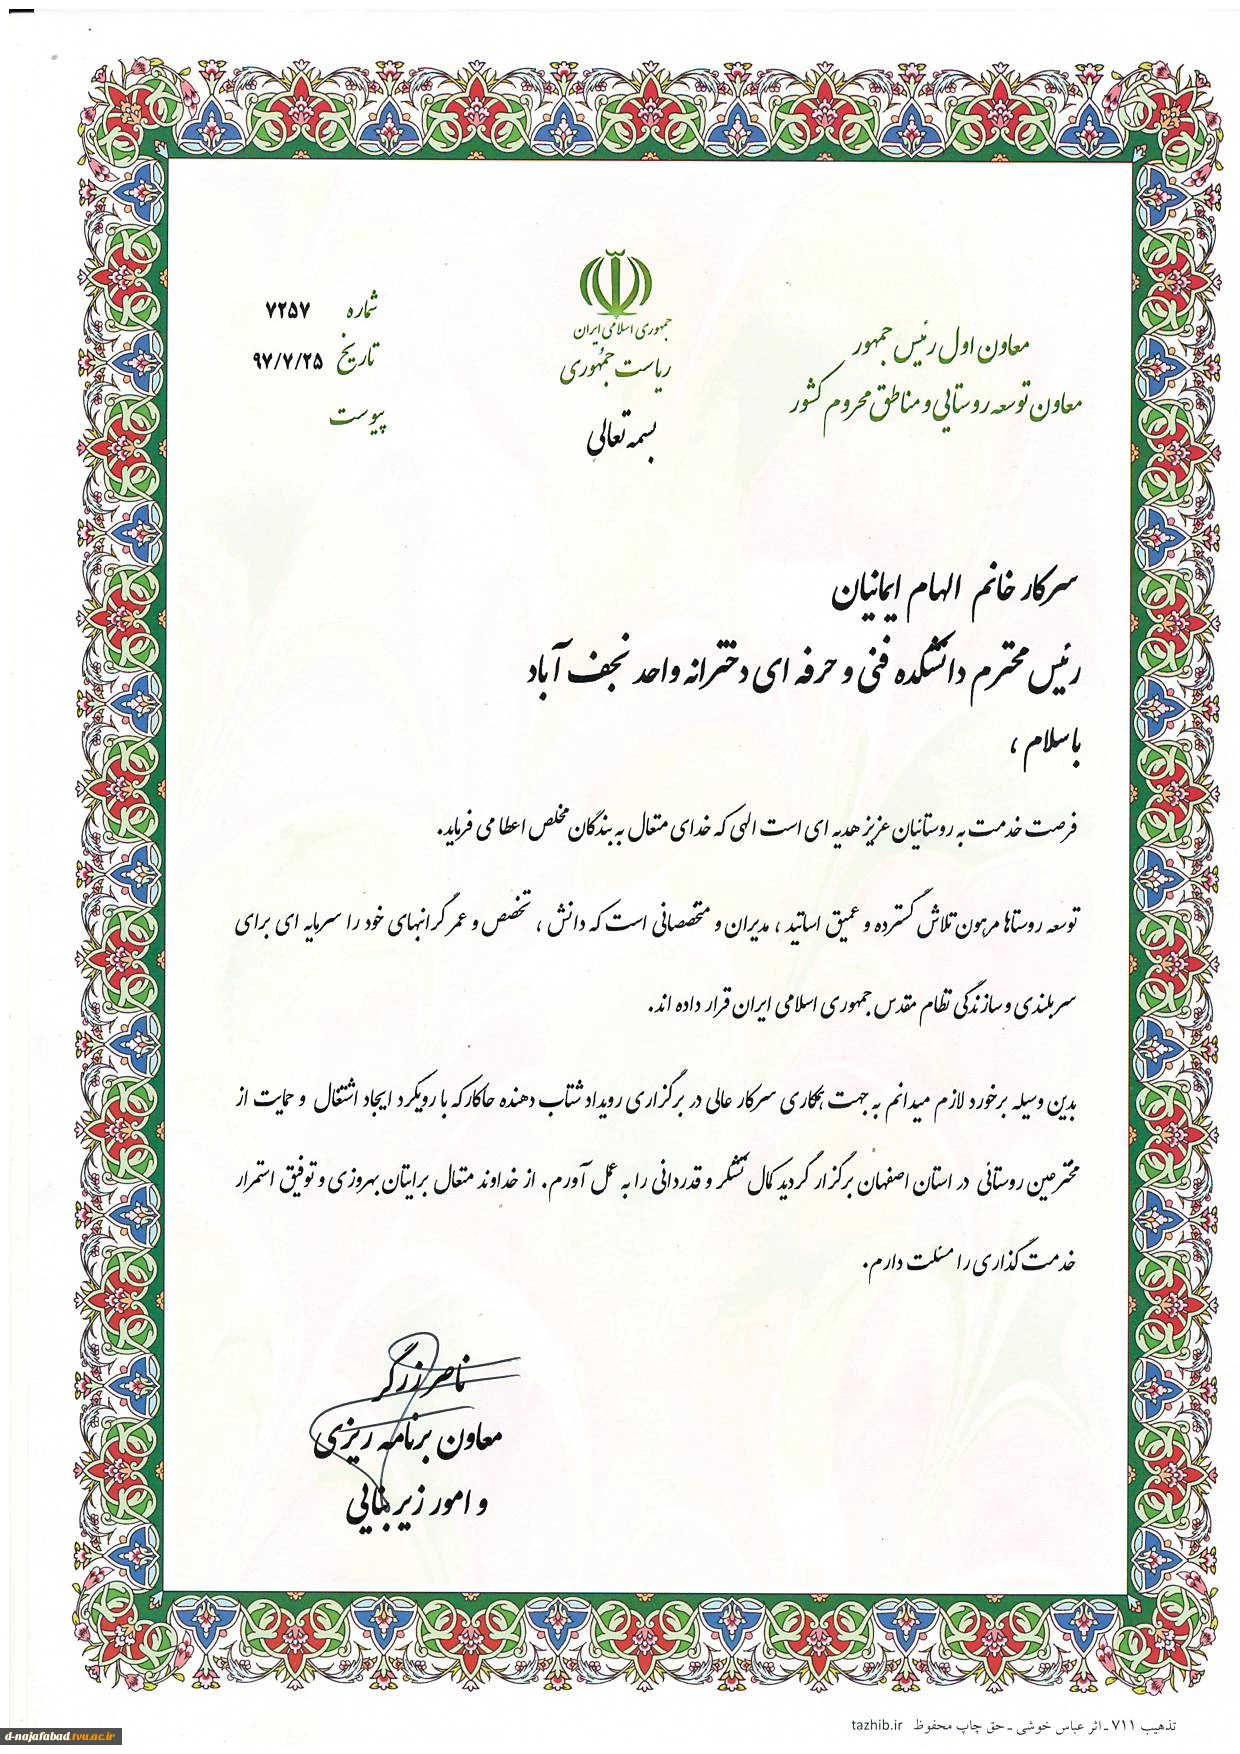 معاون اول رئیس جمهور
معاون توسعه روستایی و مناطق محروم کشور
جمهوری اسلامی ایران
ریاست جمهوری
بسمه تعالی
شماره ۷۲۵۷
تاریخ ۹۷/۷/۲۵
پیوست
سرکار خانم الهام ایمانیان
رئیس محترم دانشکده فنی و حرفه ای دخترانه واحد نجف آباد
باسلام ،
فرصت خدمت به روستائیان عزیز هدیه ای است الهی که خدای متعال به بندگان مخلص اعطا می فرماید.
توسعه روستاها مرهون تلاش گسترده و عمیق اساتید ، مدیران و متخصصانی است که دانش ، تخصص و عمر گرانبهای خود را سرمایه ای برای
سربلندی و سازندگی نظام مقدس جمهوری اسلامی ایران قرار داده اند.
بدین وسیله برخورد لازم میدانم به جهت همکاری سرکار عالی در برگزاری رویداد شتاب دهنده حاکار که با رویکرد ایجاد اشتغال و حمایت از
مخترعین روستائی در استان اصفهان برگزار گردید کمال تشکر و قدردانی را به عمل آورم. از خداوند متعال برایتان بهروزی و توفیق استمرار
خدمت گذاری را مسئلت دارم.
ناصر زرگر
معاون برنامه ریزی
و امور زیر بنایی
تذهیب ۷۱۱ - اثر عباس خوشی - حق چاپ محفوظ tazhib.ir
d-najafabad.tvu.ac.ir